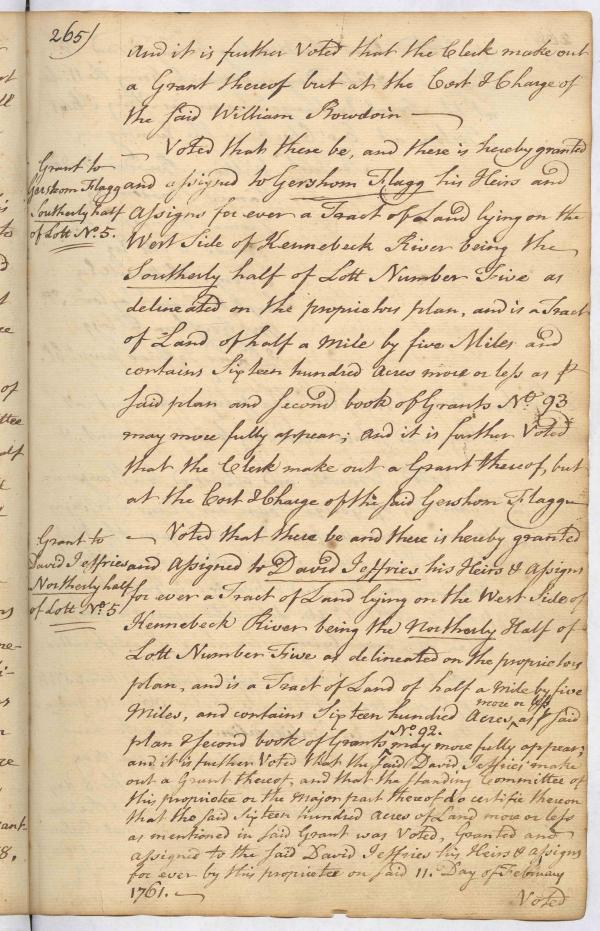 265)
And it is further Voted that the Clerk make out
a Grant thereof but at the Cost & Charge of
the said William Bowdoin —
Grant to
Gershom Flagg
Southerly half
of Lott No. 5.
— Voted that there be, and there is hereby granted
and assigned to Gershom Flagg his Heirs and
Assigns for ever a Tract of Land lying on the
West Side of Kennebeck River being the
Southerly half of Lott Number Five as
delineated on the proprietors plan, and is a Tract
of Land of half a Mile by five Miles and
contains Sixteen hundred Acres more or less as pr
said plan and second book of Grants No. 93
may more fully appear; and it is further Voted
that the Clerk make out a Grant thereof, but
at the Cost & Charge of the said Gershom Flagg —
Grant to
David Jeffries
Northerly half
of Lott No. 5
— Voted that there be and there is hereby granted
and Assigned to David Jeffries his Heirs & Assigns
for ever a Tract of Land lying on the West Side of
Kennebeck River being the Northerly Half of
Lott Number Five as delineated on the proprietors
plan, and is a Tract of Land of half a Mile by five
Miles, and contains Sixteen hundred Acres more or less as pr said
plan & second book of Grants No. 92. may more fully appear;
and it is further Voted that the said David Jeffries make
out a Grant thereof, and that the standing Committee of
this proprietee or the Major part thereof do certifie thereon
that the said Sixteen hundred Acres of Land more or less
as mentioned in said Grant was Voted, Granted and
assigned to the said David Jeffries his Heirs & Assigns
for ever by this proprietee on said 11. Day of February
1761. —
Voted